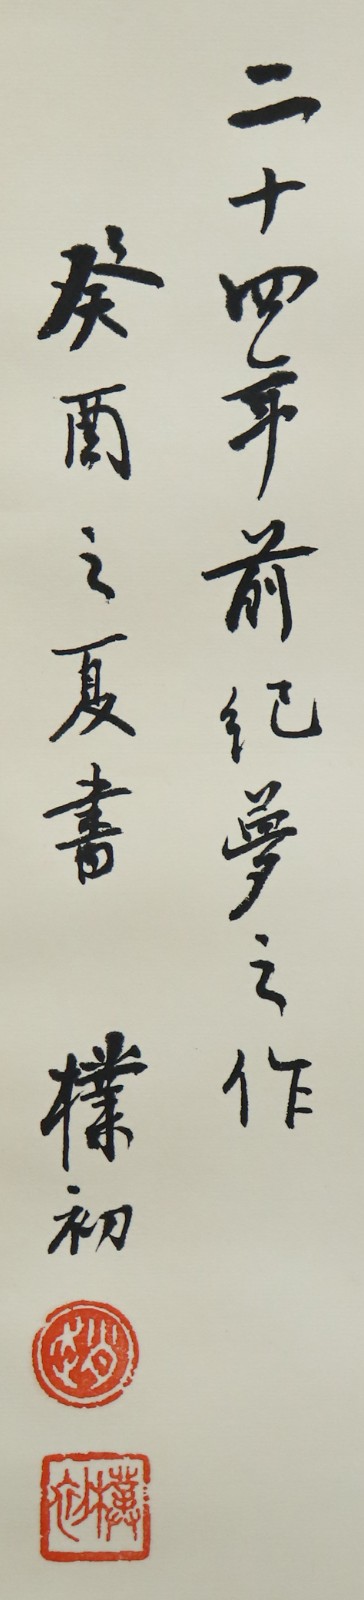 二十四年前纪夢之作
癸酉之夏書 樸初
趙
樸初